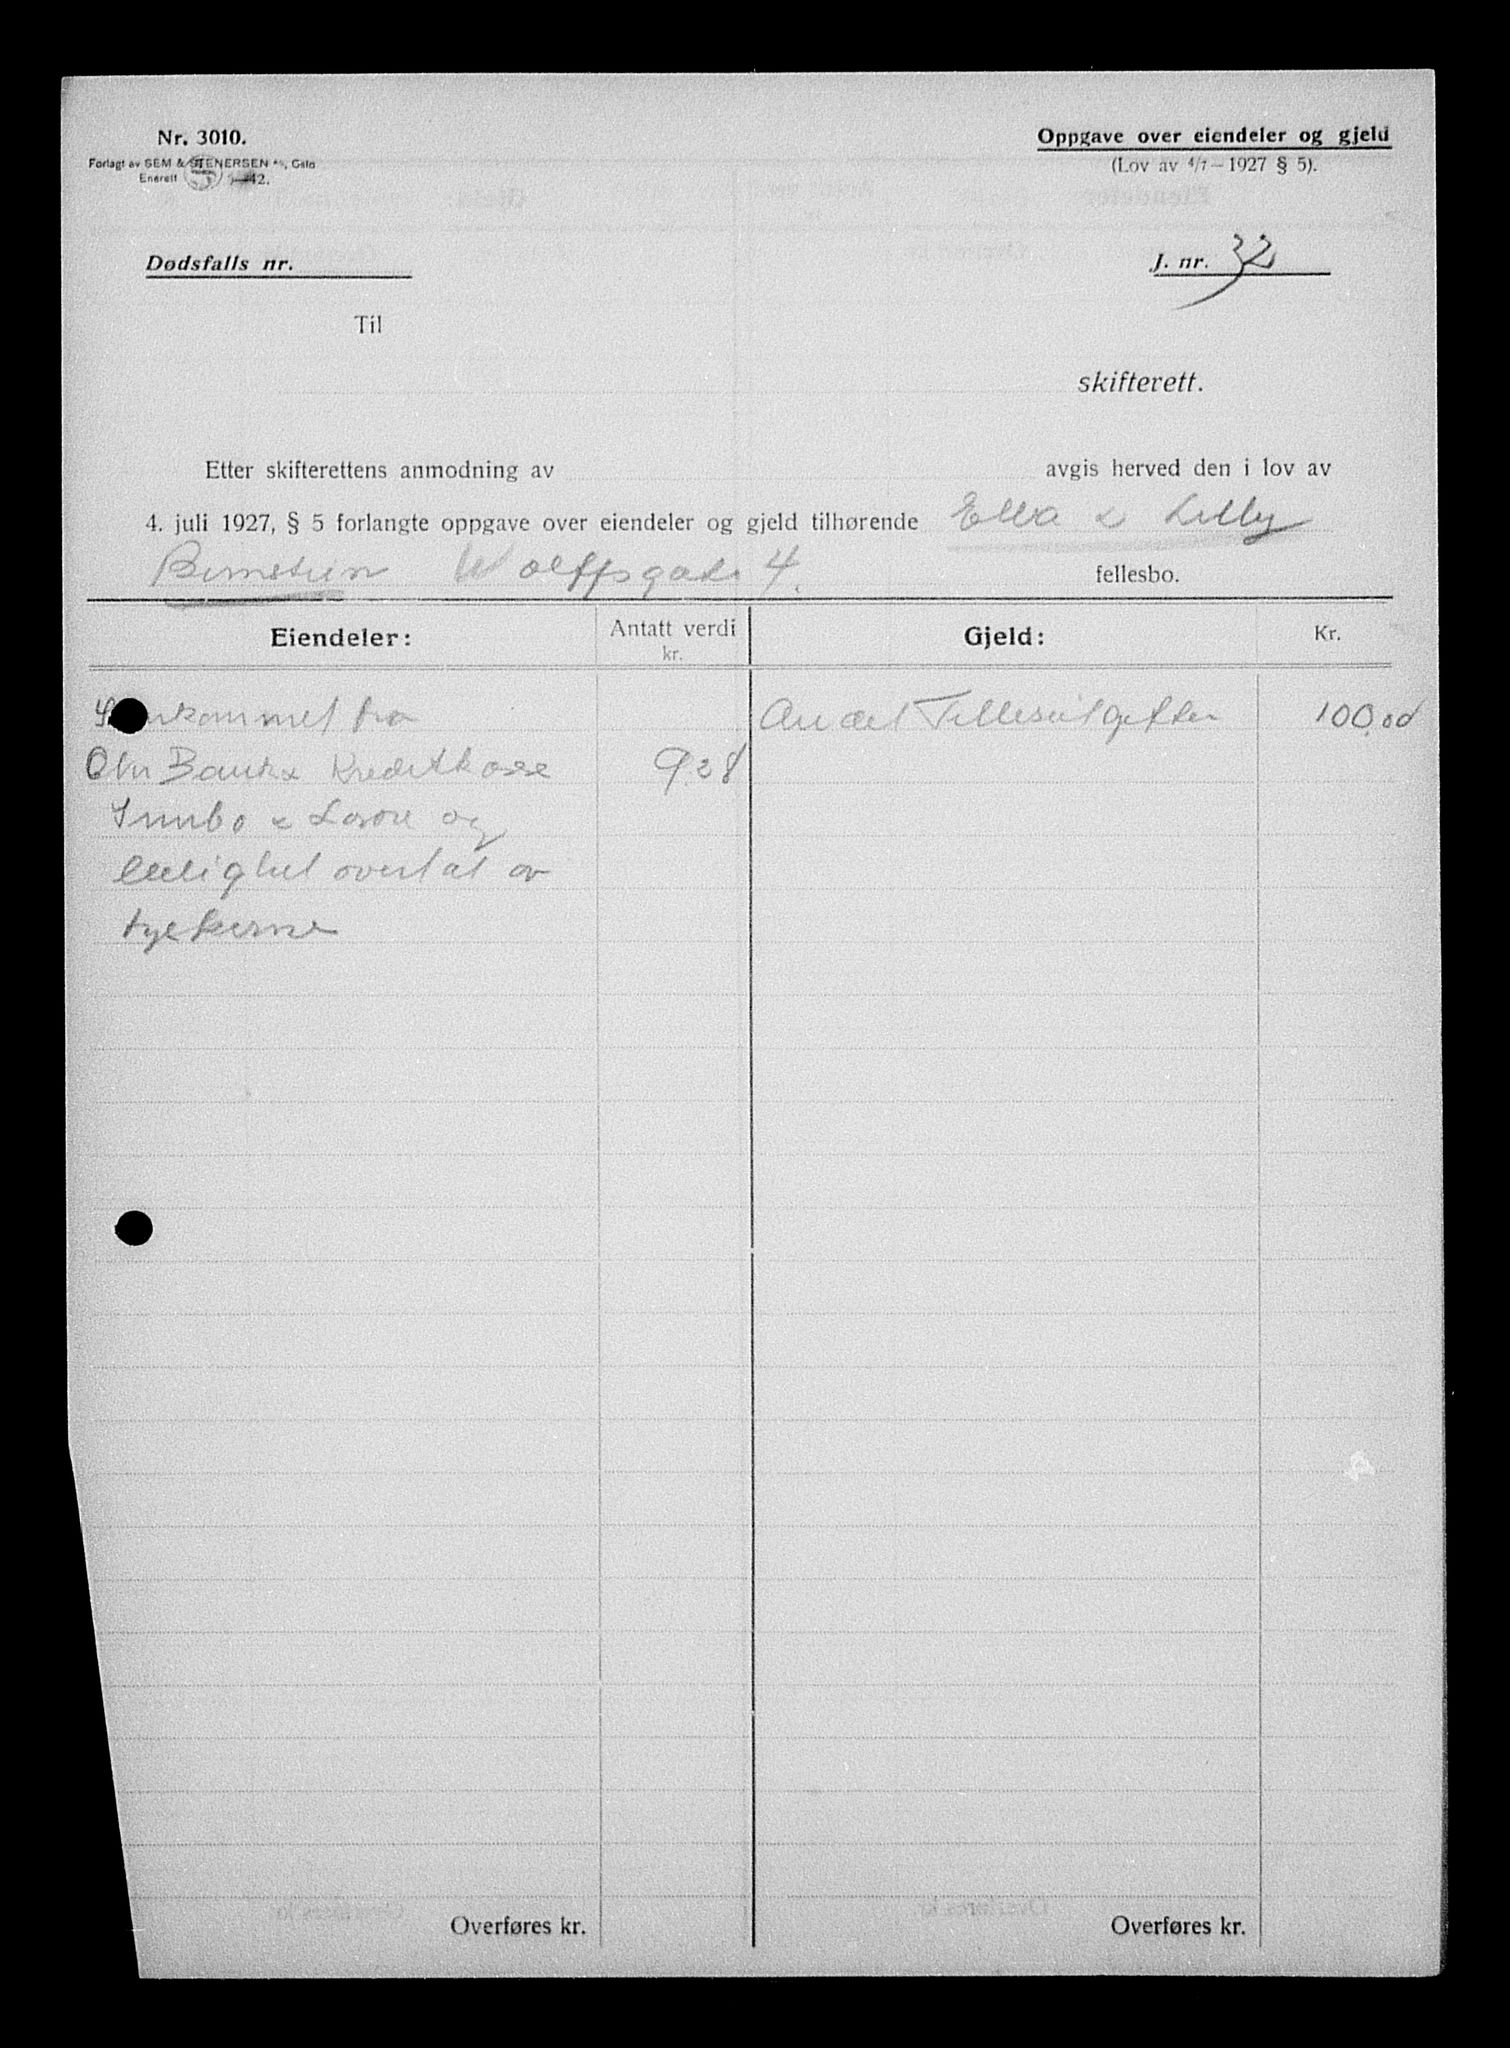 Nr. 3010.
Forlagt av SEM & STENERSEN A/S, Oslo
Enerett 5 42.
Oppgave over eiendeler og gjeld
(Lov av 4/7 – 1927 § 5).
Dødsfalls nr.
J. nr. 32
Til
skifterett.
Etter skifterettens anmodning av avgis herved den i lov av
4. juli 1927, § 5 forlangte oppgave over eiendeler og gjeld tilhørende Ella & Lilly
Bernstein Wolffsgate 4.
fellesbo.
Eiendeler: Antatt verdi kr. Gjeld: Kr.
Innkommet fra Andel Fellesutgifter 100,00
Chr Bank & Kreditkasse 9.28
Innbo & Løsøre og
leilighet overtat av
tyskerne
Overføres kr. Overføres kr.